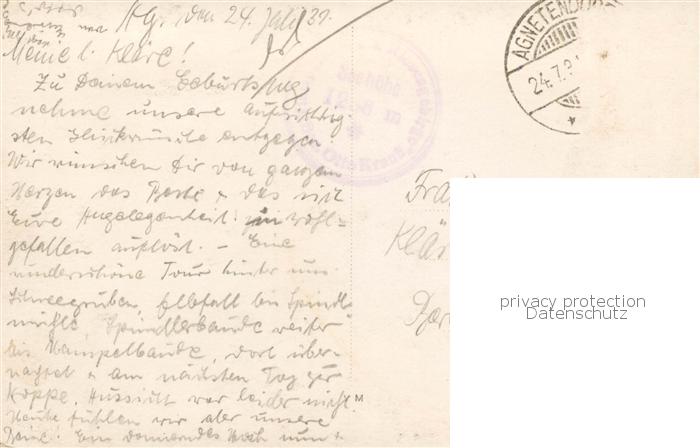 den 24. Juli 31.
Meine l. Kläre!
Zu Deinem Geburtstag
nehme unsere aufrichtig-
sten Glückwünsche entgegen
Wir wünschen Dir von ganzem
Herzen das Beste & das sich
Eure Angelegenheit in Wohl-
gefallen auflöst. – Eine
wunderschöne Tour hinter uns.
Schneegruben, Elbfall bis Spindl-
mühle, Spindlerbaude weiter
bis Hampelbaude, dort über-
nachtet & am nächsten Tag zur
Koppe. Aussicht war leider nicht.
Heute fühlen wir aber unsere
Beine! Ein donnerndes Hoch nun
AGNETENDO
24.7.31
Seehöhe
m
Otto Krause
Fra
Klär
M
privacy protection
Datenschutz